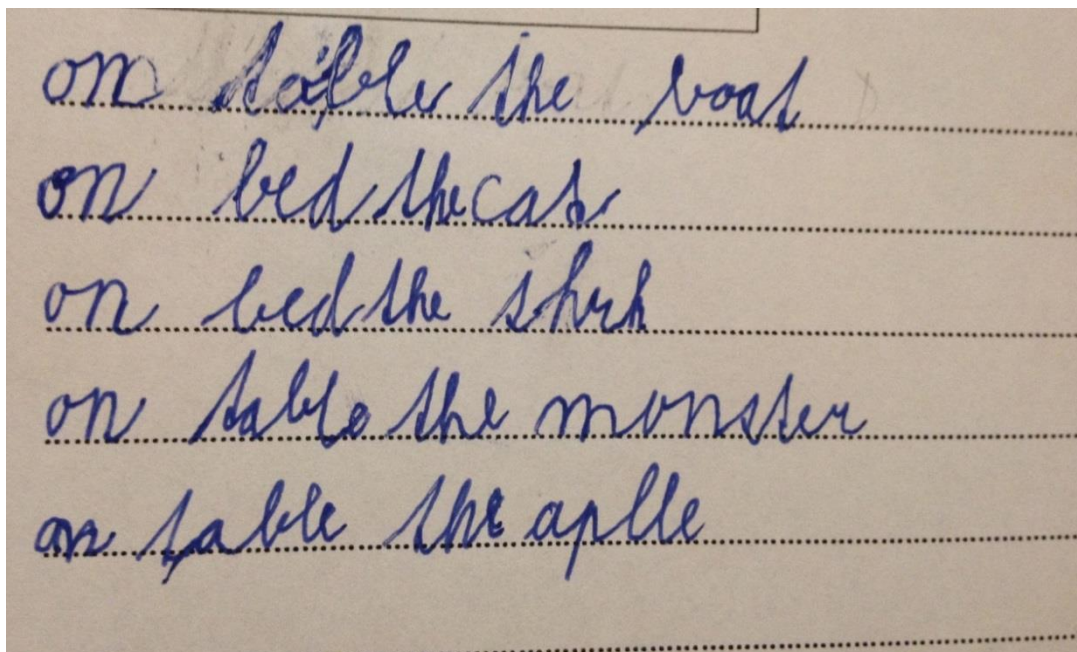 on table the boat
on bed the cat
on bed the shrk
on table the monster
on table the aplle